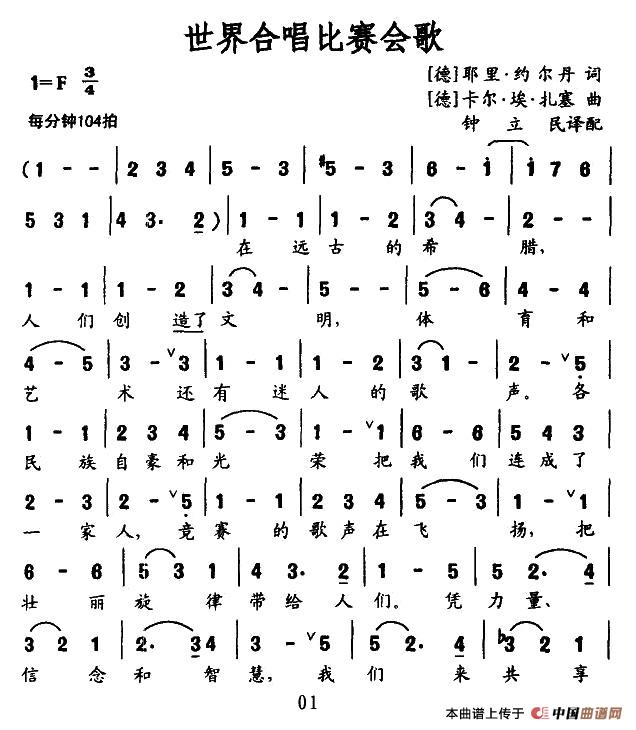 世界合唱比赛会歌
1=F 3/4
[德]耶里·约尔丹 词
[德]卡尔·埃·扎塞 曲
每分钟104拍
钟立民译配
(1 - - | 2 3 4 | 5 - 3 | #5 - 3 | 6 - i | i 7 6 |
5 3 1 | 4 3. 2 ) | 1 - 1 | 1 - 2 | 3 4 | 2 - - |
在远古的希腊,
1 - 1 | 1 - 2 | 3 4 - | 5 - - | 5 - 6 | 4 - 4 |
人们创造了文明,体育和
4 - 5 | 3 - ∨3 | 3 - 2 | 1 - 2 | 3 1 - | 2 - ∨5 |
艺术还有迷人的歌声。各
1 - 1 | 2 3 4 | 5 - 3 | 1 - ∨1 | 6 - 6 | 5 4 3 |
民族自豪和光荣把我们连成了
2 - 3 | 2 - ∨5 | 1 - 1 | 2 3 4 | 5 - 3 | 1 - ∨1 |
一家人,竞赛的歌声在飞扬,把
6 - 6 | 5 3 1 | 4 3. 2 | 1 - 5 | 5 - 5 | 5 2. 4 |
壮丽旋律带给人们。凭力量、
3 2 1 | 2. 3 4 | 3 - ∨5 | 5 - 5 | 5 2. 4 | b3 2 1 |
信念和智慧,我们来共享
01
本曲谱上传于 中国曲谱网